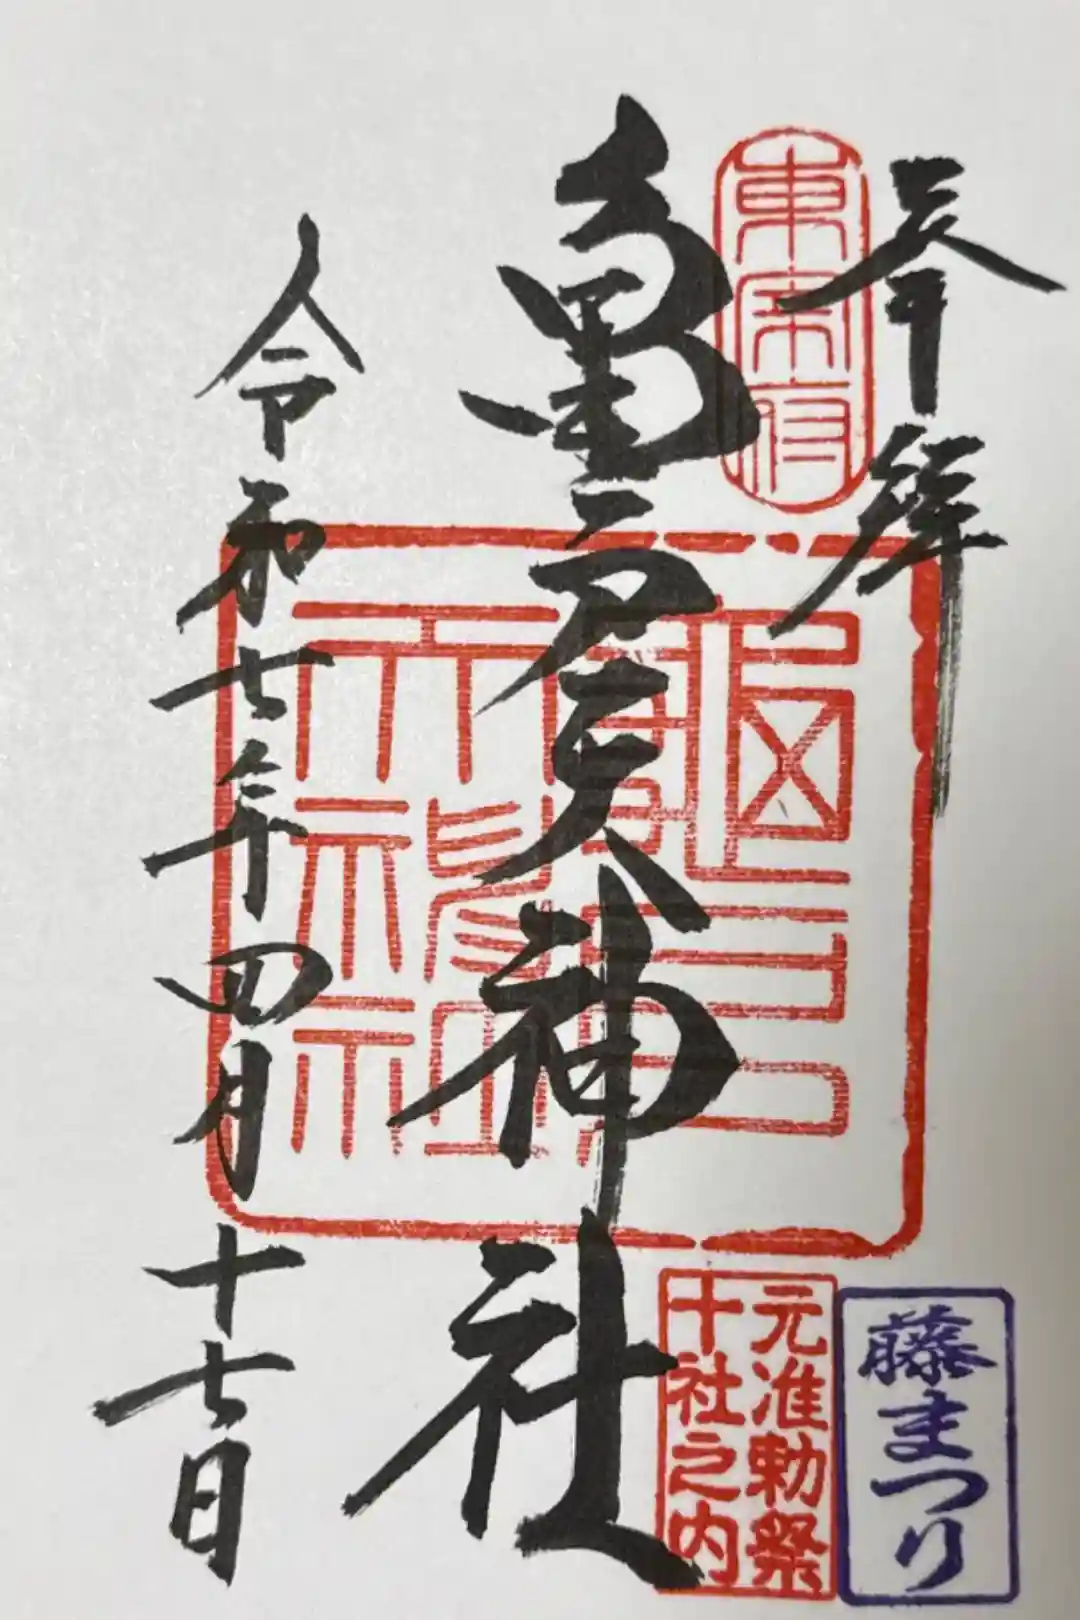 奉拝
東宰府
亀戸天神社
令和七年四月十七日
元准勅祭
十社之内
藤まつり